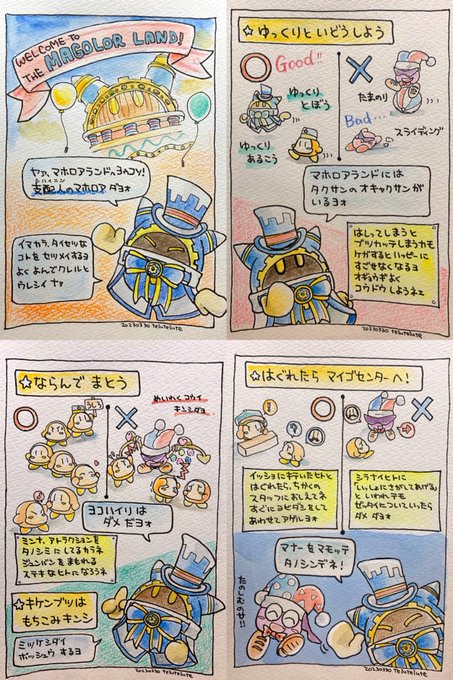 WELCOME TO
THE MAGOLOR LAND!
ヤァ、マホロアランドへヨウコソ!
支配人のマホロア ダヨォ
シハイニン
イマカラ、タイセツな
コトを セツメイするヨォ
よく よんでクレルと
ウレシイ ナァ
20230330 telutelute
☆ゆっくりといどうしよう
Good!!
ゆっくり
とぼう
ゆっくり
あるこう
たまのり
Bad...
スライディング
マホロアランドには
タクサンの オキャクサンが
イルヨォ
はしってしまうと
ブツカッテしまうカモ
ケガするとハッピーに
すごせなくなるヨォ
オギョウギよく
コウドウ しようネェ
20230330 telutelute
☆ならんで まとう
めいわくコウイ
キンシダヨ
ヨコハイリは
ダメ だヨォ
ミンナ、アトラクションを
タノシミに してるカラネ
ジュンバンを まもれる
ステキなヒトに なろうネ
☆キケンブツは
もちこみ キンシ
ミツケシダイ
ボッシュウ するヨ
20230330 telutelute
☆はぐれたら マイゴセンターへ!
イッショにキテいたヒトと
はぐれたら、ちかくの
スタッフに おしえてネ
すぐにヨビダシをして
あわせてアゲルヨォ
シラナイヒトに
「いっしょにさがしてあげる」
と いわれテモ
ゼッタイについていったら
ダメ ダヨォ
マナーをマモッテ
タノシンデネ!
たのしむのサ!!
20230330 telutelute